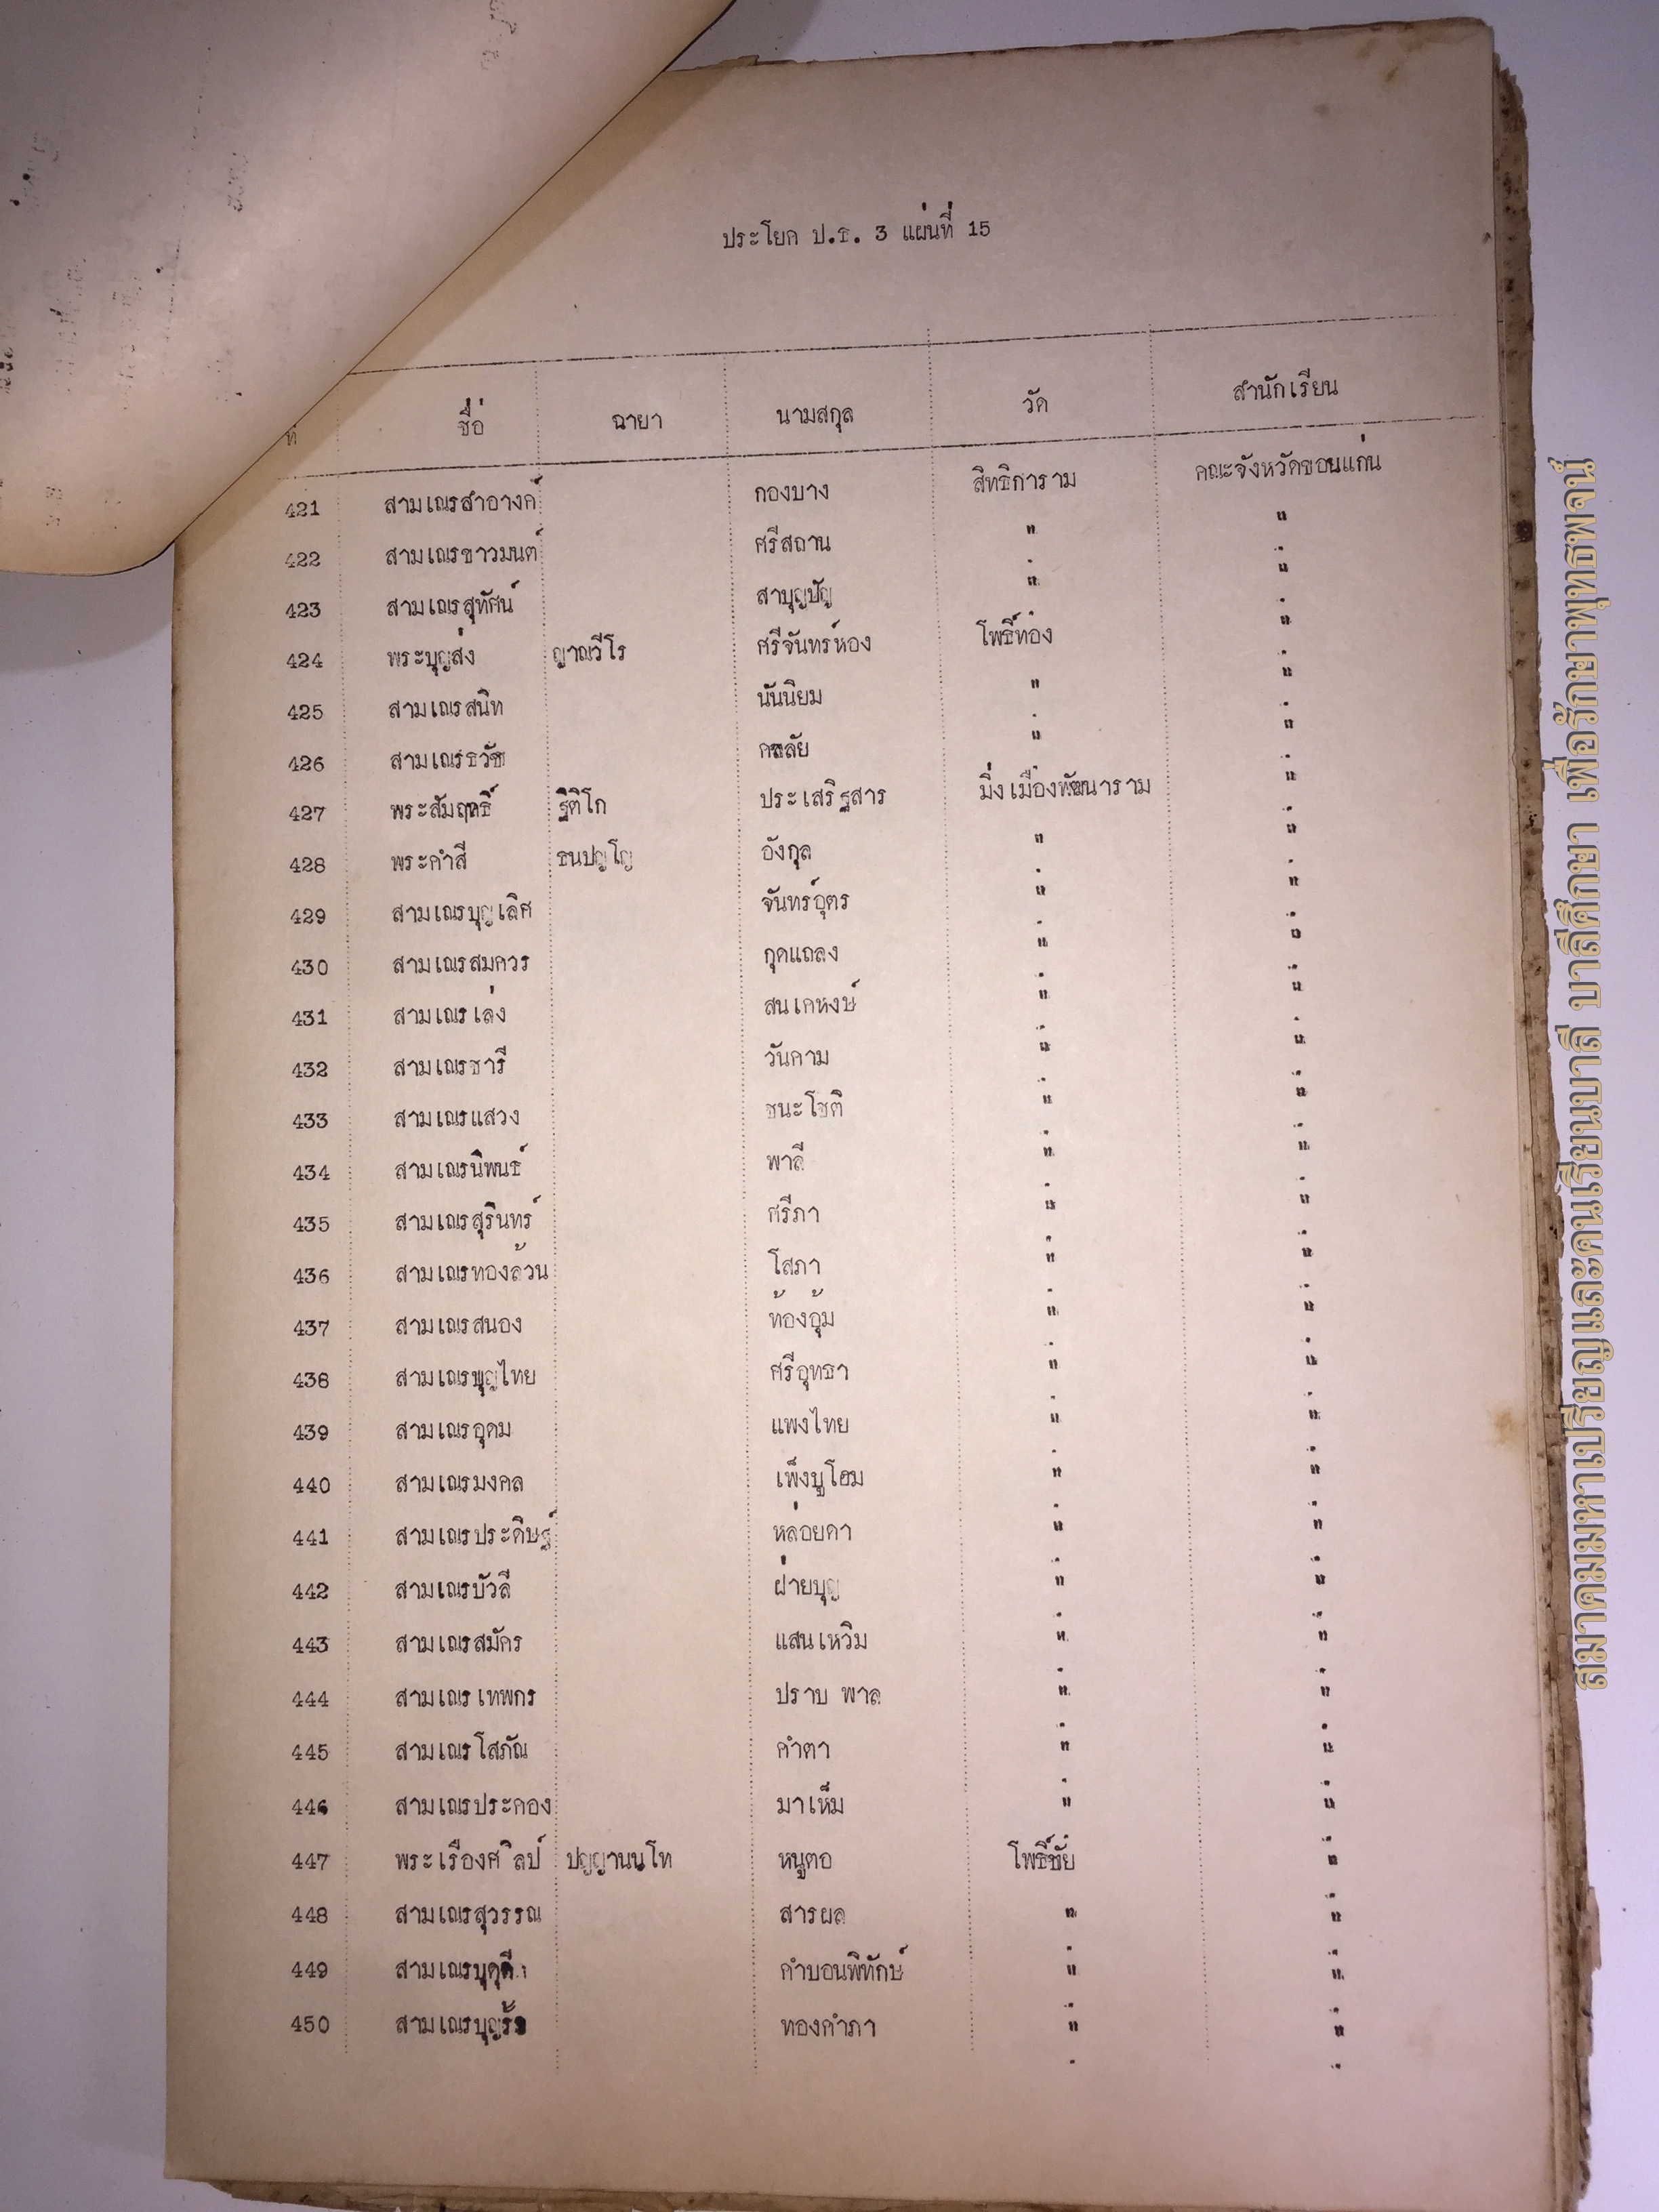 ประโยค ป.ธ. 3 แผ่นที่ 15
ที่ ชื่อ ฉายา นามสกุล วัด สำนักเรียน
421 สามเณรสำอางค์ กองบาง สิทธิการาม คณะจังหวัดขอนแก่น
422 สามเณรขาวมนต์ ศรีสถาน " "
423 สามเณรสุทัศน์ สาบุญปัญ " "
424 พระบุญส่ง ญาณวีโร ศรีจันทร์หอง โพธิ์ทอง "
425 สามเณรสนิท นันนิยม " "
426 สามเณรธวัช " "
427 พระสัมฤทธิ์ ฐิติโก ประเสริฐสาร มิ่งเมืองพัฒนาราม "
428 พระคำสี ธนปญฺโญ อังกุล " "
429 สามเณรบุญเลิศ จันทร์อุตร " "
430 สามเณรสมควร กุดแถลง " "
431 สามเณรเล่ง สนเคหงษ์ " "
432 สามเณรชารี วันคาม " "
433 สามเณรแสวง ชนะโชติ " "
434 สามเณรนิพนธ์ พาลี " "
435 สามเณรสุรินทร์ ศรีภา " "
436 สามเณรทองล้วน โสภา " "
437 สามเณรสนอง ท้องอุ้ม " "
438 สามเณรบุญไทย ศรีอุทธา " "
439 สามเณรอุดม แพงไทย " "
440 สามเณรมงคล เพ็งบูโฮม " "
441 สามเณรประดิษฐ์ หล่อยดา " "
442 สามเณรบัวลี ฝ่ายบุญ " "
443 สามเณรสมัคร แสนเหวิม " "
444 สามเณรเทพกร ปราบ พาล " "
445 สามเณรโสภัณ คำตา " "
446 สามเณรประคอง มาเห็ม " "
447 พระเรืองศิลป์ ปญฺญานนฺโท หนูตอ โพธิ์ชัย "
448 สามเณรสุวรรณ สารผล " "
449 คำบอนพิทักษ์ " "
450 ทองคำภา " "
สมาคมมหาเปรียญและคนเรียนบาลี บาลีศึกษา เพื่อรักษาพุทธพจน์